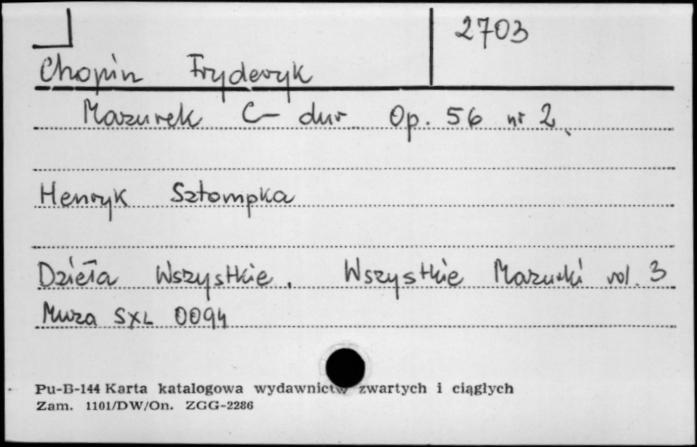 2703
Chopin Fryderyk
Mazurek C-dur Op. 56 nr 2.
Henryk Sztompka
Dzieła Wszystkie. Wszystkie Mazurki vol. 3
Muza SXL 0094
Pu-B-144 Karta katalogowa wydawnictw zwartych i ciągłych
Zam. 1101/DW/On. ZGG-2286